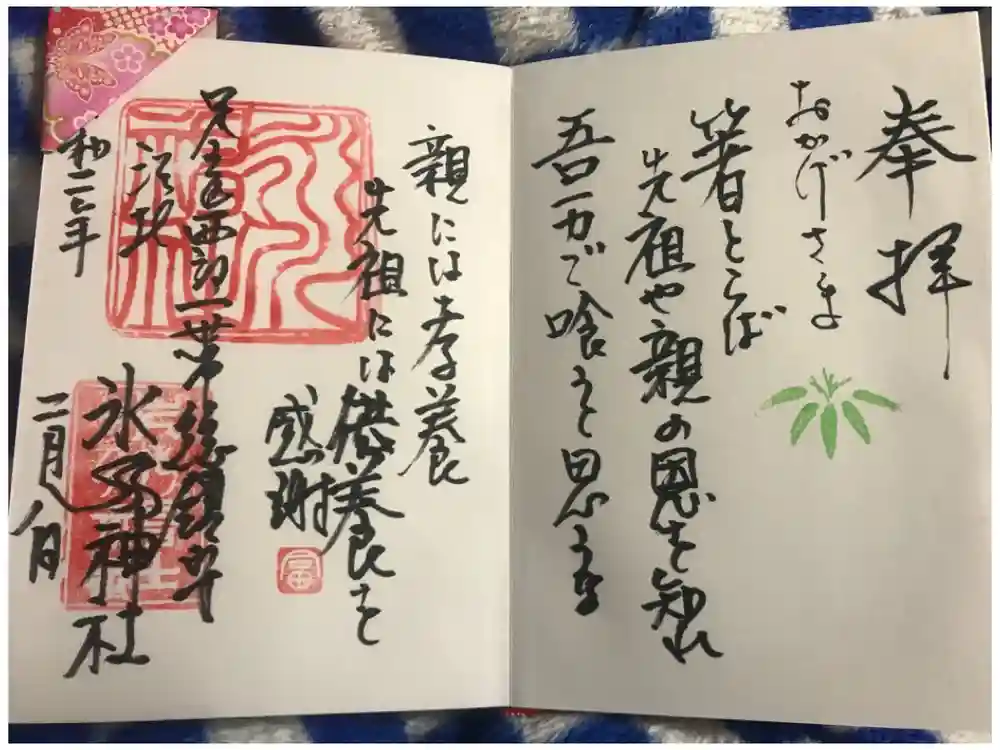 奉拝
おかげさま
箸とらば
先祖や親の恩を知れ
吾一力で喰うと思うな
親には孝養
先祖には供養を
感謝
児玉西部一帯総鎮守
氷川神社
令和二年
二月八日